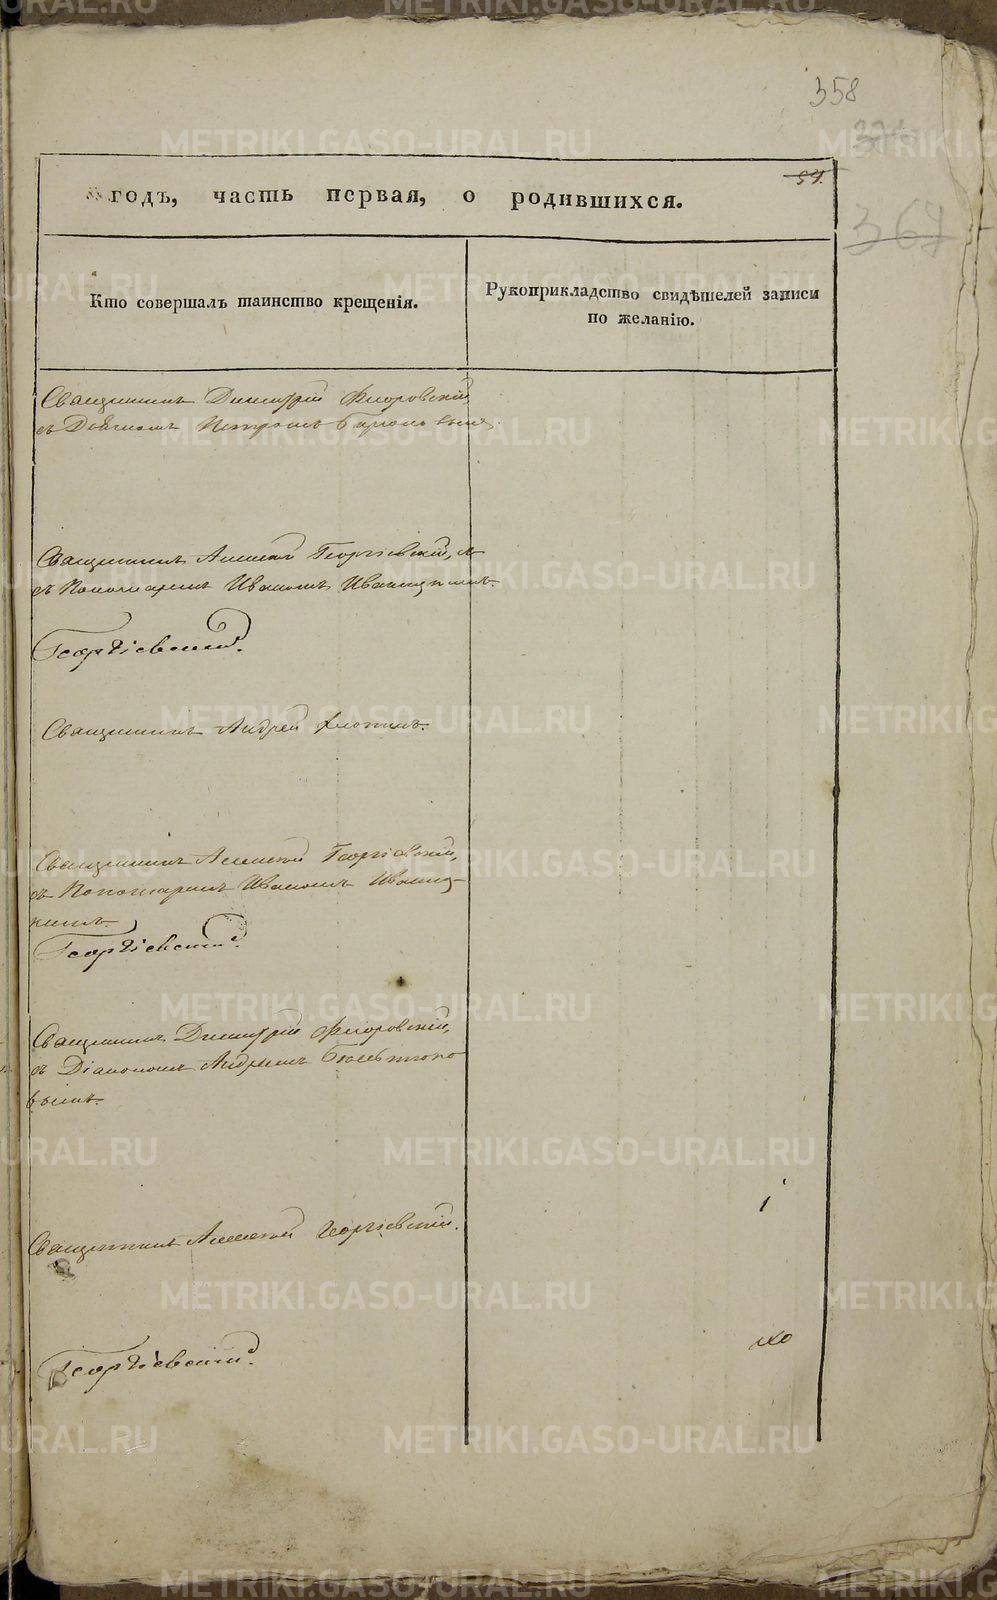 METRIKI.GASO-URAL.RU
358
57.
367
годъ, часть первая, о родившихся.
Кто совершалъ таинство крещенія.
Рукоприкладство свидѣтелей записи
по желанію.
Священникъ Димитрій Флоровскій,
съ Дьячкомъ Петромъ
Священникъ Алексѣй Георгіевскій,
съ Пономаремъ Иваномъ Иваницкимъ.
Георгіевский.
Священникъ Андрей
Священникъ Алексѣй Георгіевскій,
съ Пономаремъ Иваномъ Иваниц-
кимъ.
Георгіевский.
Священникъ Димитрій Флоровскій,
съ Діакономъ Андреемъ
вымъ.
Священникъ Алексѣй Георгіевскій.
Георгіевский.